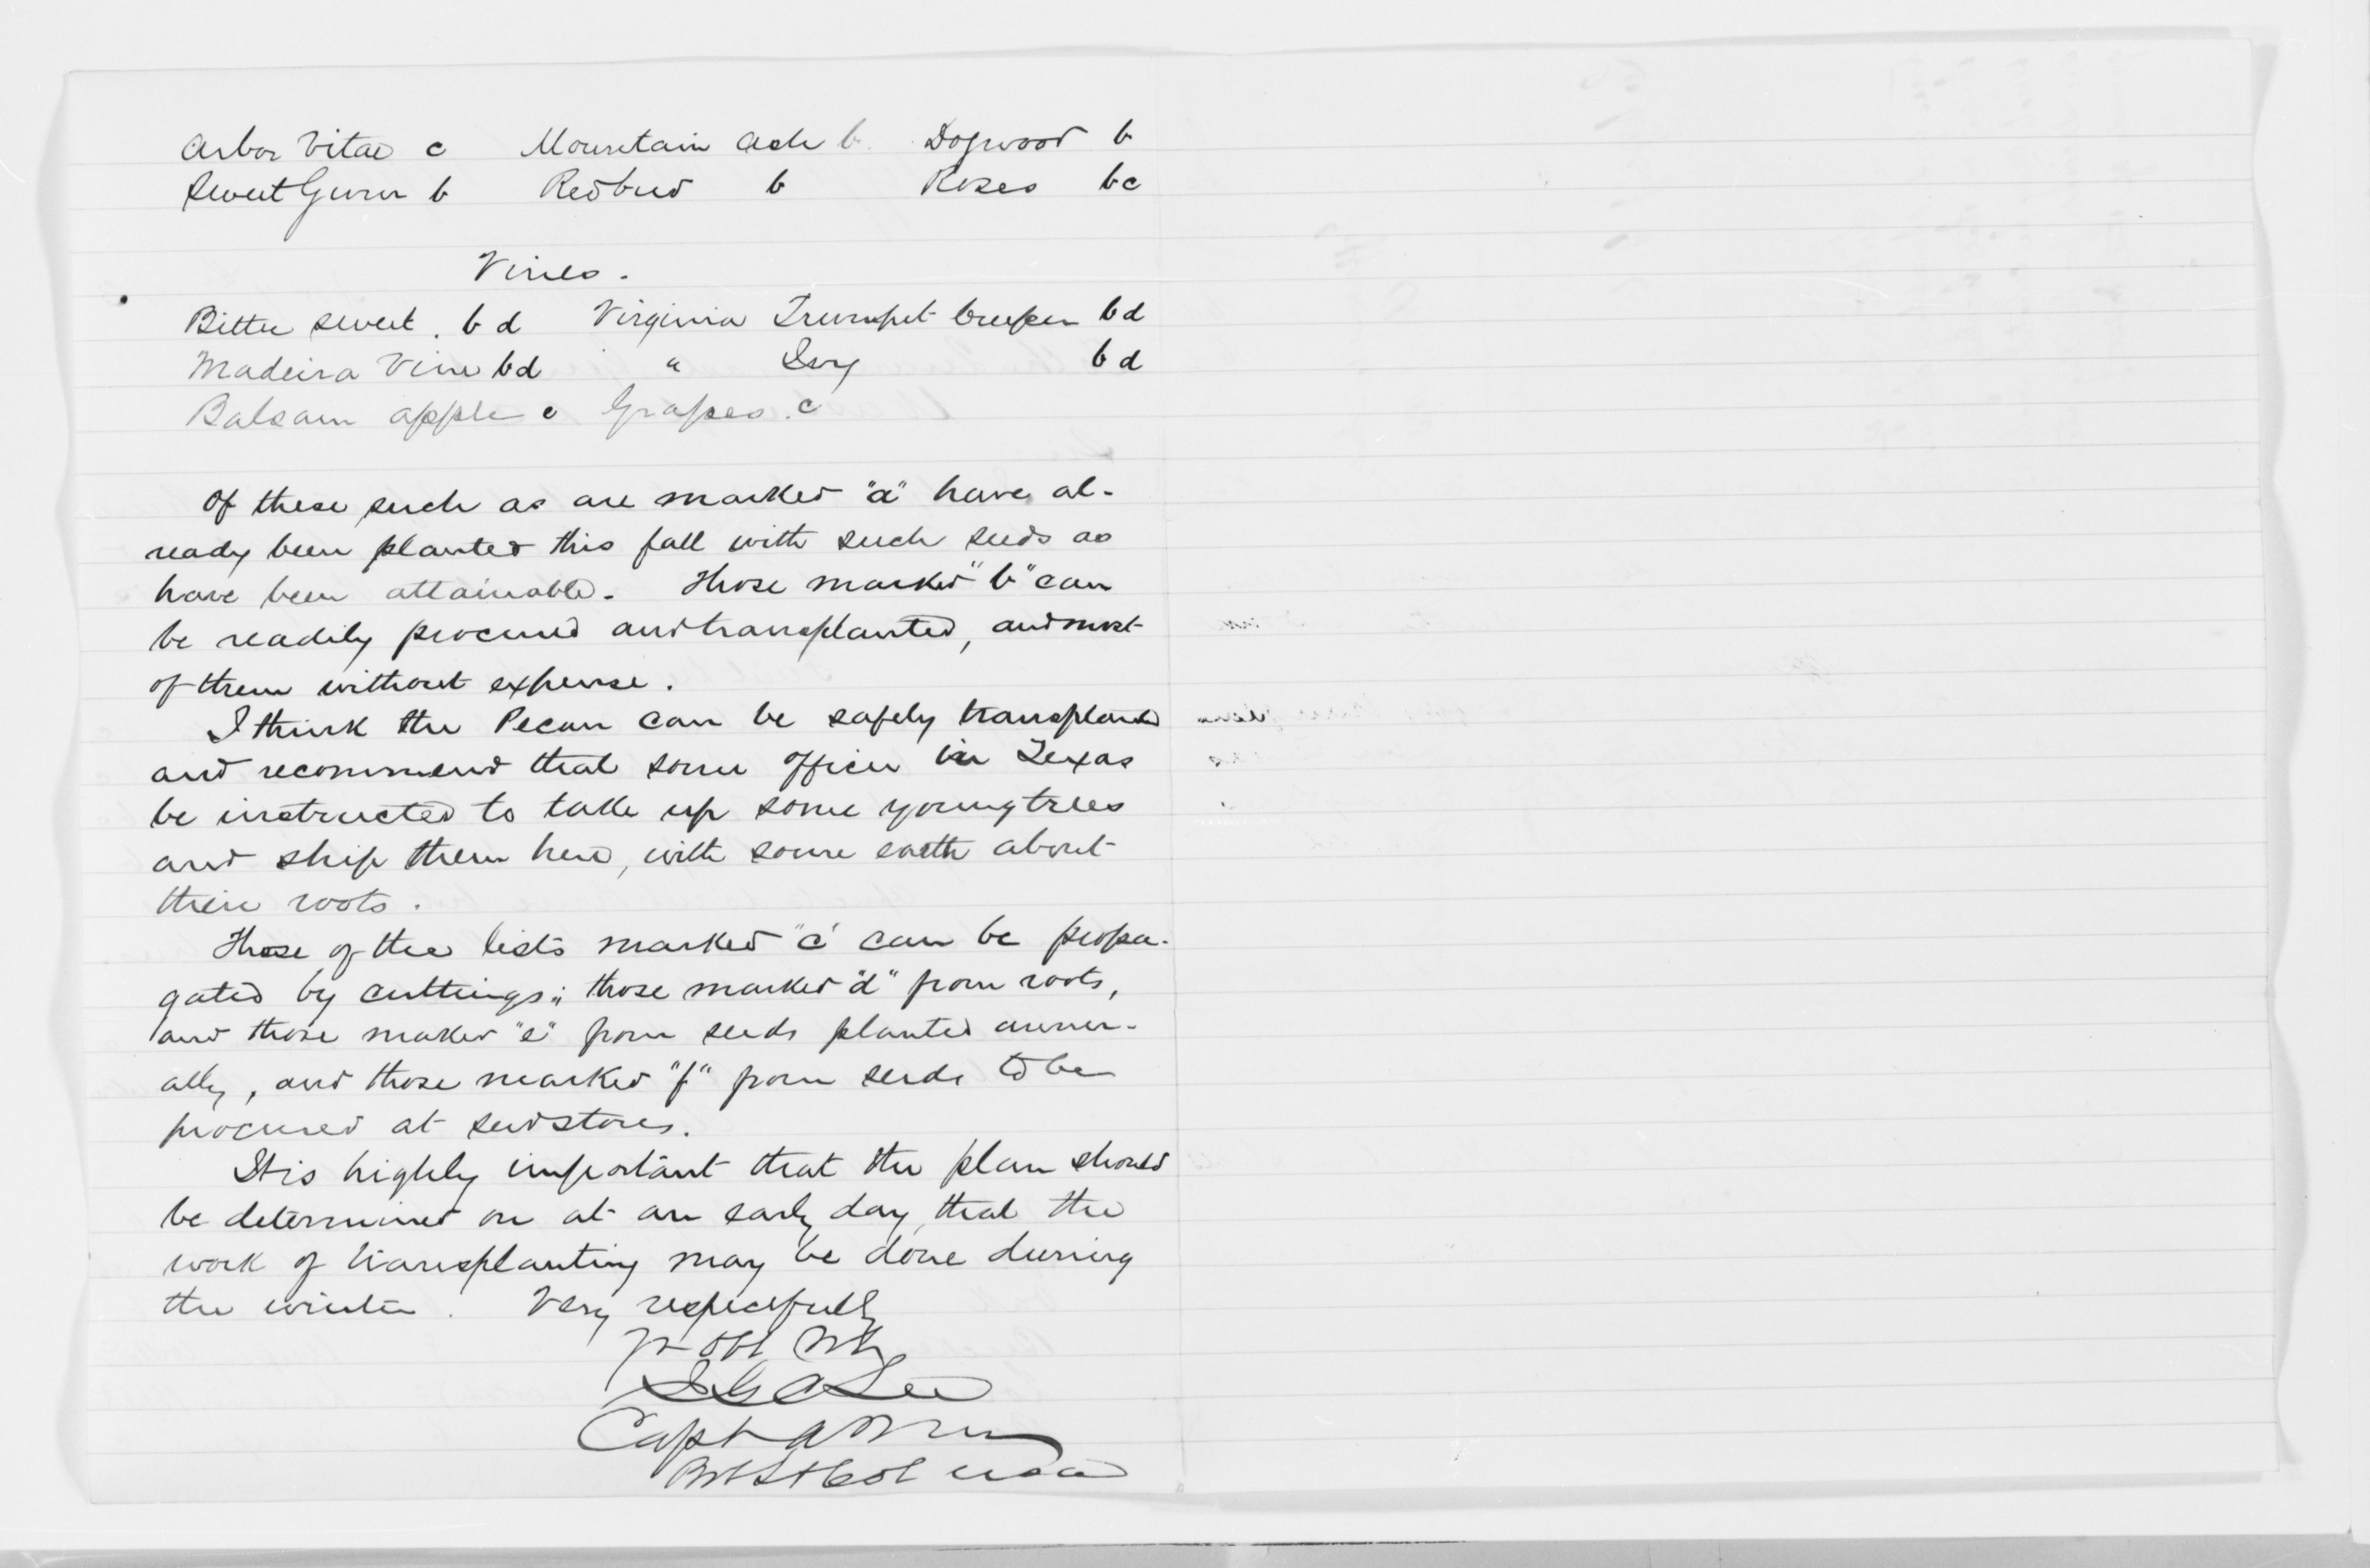 Arbor Vitae c Mountain Ash b. Dogwood b
Sweet Gum b Redbud b Roses bc
Vines.
Bitter sweet. bd Virginia Trumpet creeper bd
Madeira Vine bd " Ivy bd
Balsam apple e Grapes. c
Of these such as are marked "a" have al-
ready been planted this fall with such seeds as
have been attainable. Those marked "b" can
be readily procured and transplanted, and most
of them without expense.
I think the Pecan can be safely transplanted
and recommend that some officer in Texas
be instructed to take up some young trees
and ship them here, with some earth about
their roots.
Those of the lists marked "c" can be propa-
gated by cuttings; those marked "d" from roots,
and those marked "e" from seeds planted annu-
ally, and those marked "f" from seeds to be
procured at seedstores.
It is highly important that the plan should
be determined on at an early day, that the
work of transplanting may be done during
the winter. Very respectfully
Yr Obt Svt
Lee
Capt A Q M
Bvt Lt Col USA